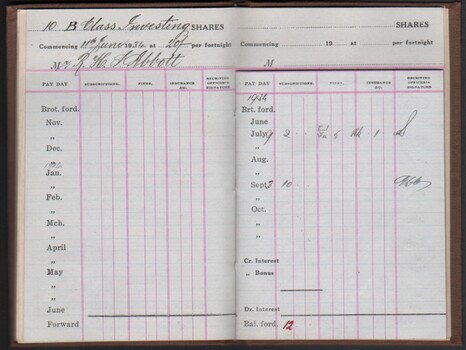 10 B Class Investing SHARES
Commencing 11th June 1934 at 20/- per fortnight
Mr R. H. Abbott
PAY DAY SUBSCRIPTIONS. FINES. INSURANCE &C. RECEIVING OFFICER'S SIGNATURE
Brot. ford.
Nov.
"
Dec.
"
Jan.
"
Feb.
"
Mch.
"
April
"
May
"
June
Forward
SHARES
Commencing 19 at per fortnight
M
PAY DAY SUBSCRIPTIONS. FINES. INSURANCE &C. RECEIVING OFFICER'S SIGNATURE
1934
Brt. ford.
June
July 9 2
"
Aug.
"
Sept 3 10
"
Oct.
"
"
Cr. Interest
" Bonus
Dr. Interest
Bal. ford. 12